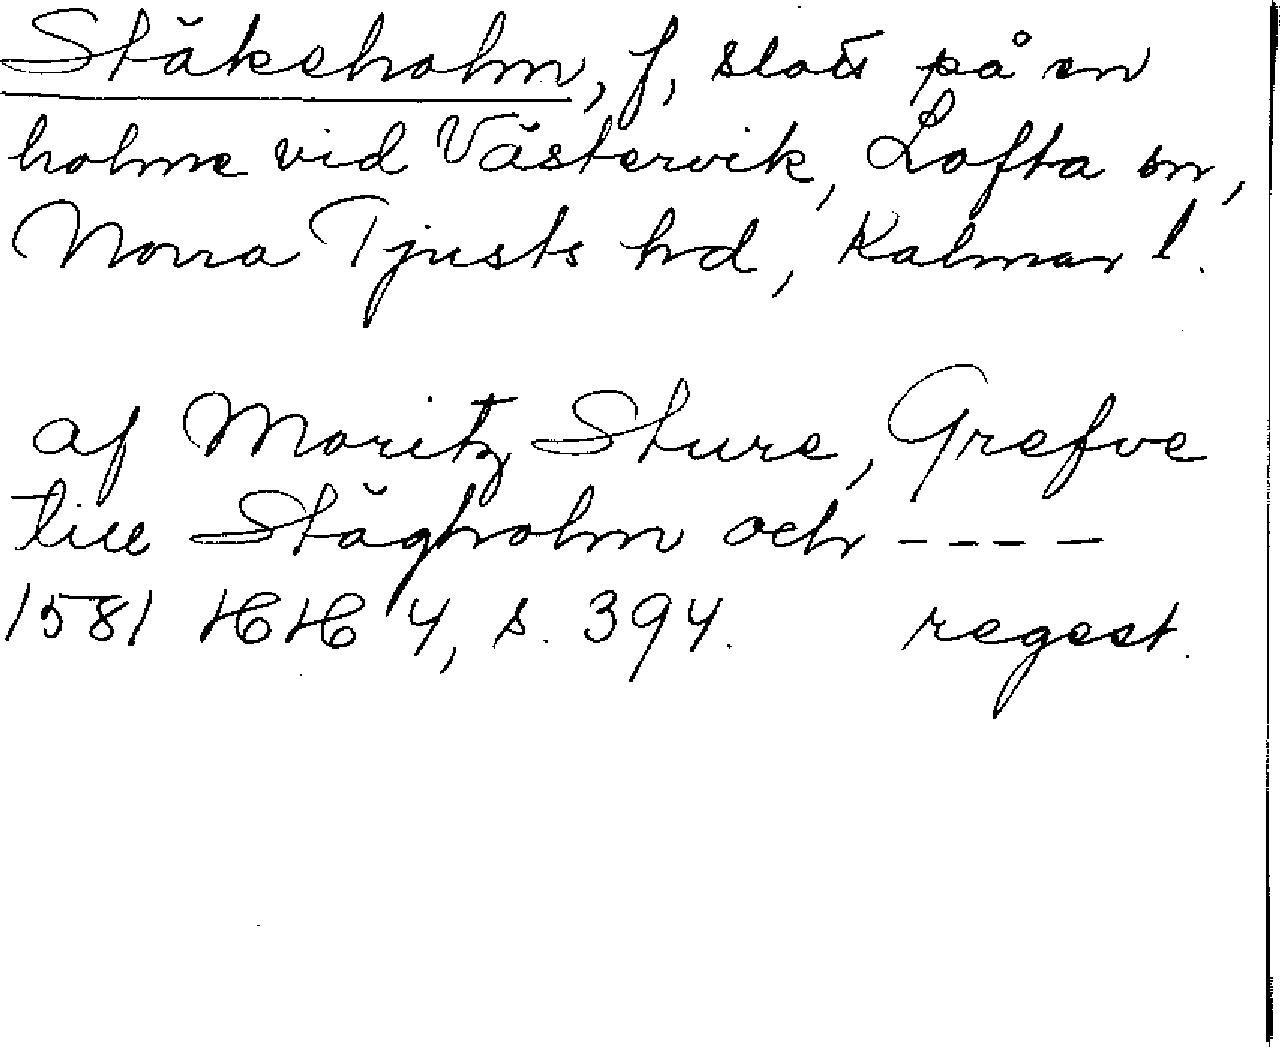 Stäkeholm, f, slott på en
holme vid Västervik, Lofta sn,
Norra Tjusts hd, Kalmar l.
af Moritz Sture, Grefve
till Stägholm och ----
1581 HH 4, s. 394. regest.